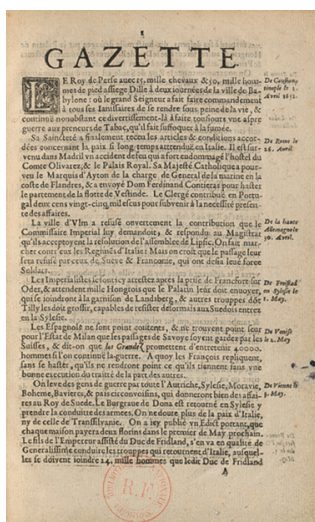 GAZETTE
LE Roy de Perse auec 15. mille cheuaux & 50. mille hom-
mes de pied assiege Dille à deux iournées de la ville de Ba-
bylone: où le grand Seigneur a fait faire commandement
à tous ses Ianissaires de se rendre sous peine de la vie, &
continuë nonobstant ce diuertissement-là à faire tousiours vne aspre
guerre aux preneurs de Tabac, qu'il fait suffoquer à la fumée.
De Constanti-
nople le 2.
Auril 1631.
Sa Saincteté a finalement receu les articles & conditions accor-
dées concernant la paix si long-temps attenduë en Italie. Il est sur-
venu dans Madrid vn accident de feu qui a fort endommagé l'hostel du
Comte Oliuarez, & le Palais Royal. Sa Majesté Catholique a pour-
veu le Marquis d'Ayton de la charge de General de la marine en la
coste de Flandres, & a envoyé Dom Ferdinand Contieras pour haster
le partement de la flotte de Velinde. Le Clergé contribuë en Portu-
gal deux cens vingt-cinq mil escus pour subvenir à la necessité presen-
te des affaires.
De Rome le
26. Auril.
La ville d'Vlm a refusé ouvertement la contribution que le
Commissaire Imperial luy demandoit, & respondu au Magistrat
qu'ils acceptoyent la resolution de l'assemblée de Lipsic. On fait mar-
cher contr'eux les Regimés d'Italie: Mais on croit que le passage leur
sera refusé par ceux de Sueve & Franconie, qui ont desia levé force
Soldats.
De la haute
Allemagne le
30. Auril.
Les Imperialistes escartez arrestez apres la prise de Francfort sur
Oder, & attendent mille Hongrois que le Palatin leur doit envoyer,
qui se ioindront à la garnison de Landsberg, & autres trouppes dõt
Tilly les doit grossir, capables de resister desormais aux Suedois entrez
en la Sylesie.
De Freistad
en Sylesie le
1. May.
Les Espagnols ne sont point contents, & ne trouvent point leur
pour l'Estat de Milan que les passages de Savoye soyent gardez par les
Suisses, & dit-on que les Grands promettent d'entretenir 40000.
hommes si l'on continuë la guerre. A quoy les François repliquent,
sans se haster, qu'ils ne rendront point ce qu'ils tiennent sans vne
bonne execution du traitté de la part des autres.
De Venise
le 2. May.
On leve des gens de guerre par toute l'Autriche, Sylesie, Moravie,
Boheme, Bavieres, & païs circonvoisins, qui donneront bien des affai-
res au Roy de Suede. Le Burgrave de Dona est retourné en Sylesie y
prendre la conduitte des armées. On ne doute plus de la paix d'Italie,
ny de celle de Transsilvanie. On a icy publié vn Edict portant, que
chaque maison payera deux florins dans le premier de May prochain.
Le fils de l'Empereur assisté du Duc de Fridland, s'en va en qualité de
Generalissime conduire les trouppes qui retournent d'Italie, ausquel-
les se doivent ioindre 24. mille hommes que ledit Duc de Fridland
De Vienne le
3. May.
R.F.